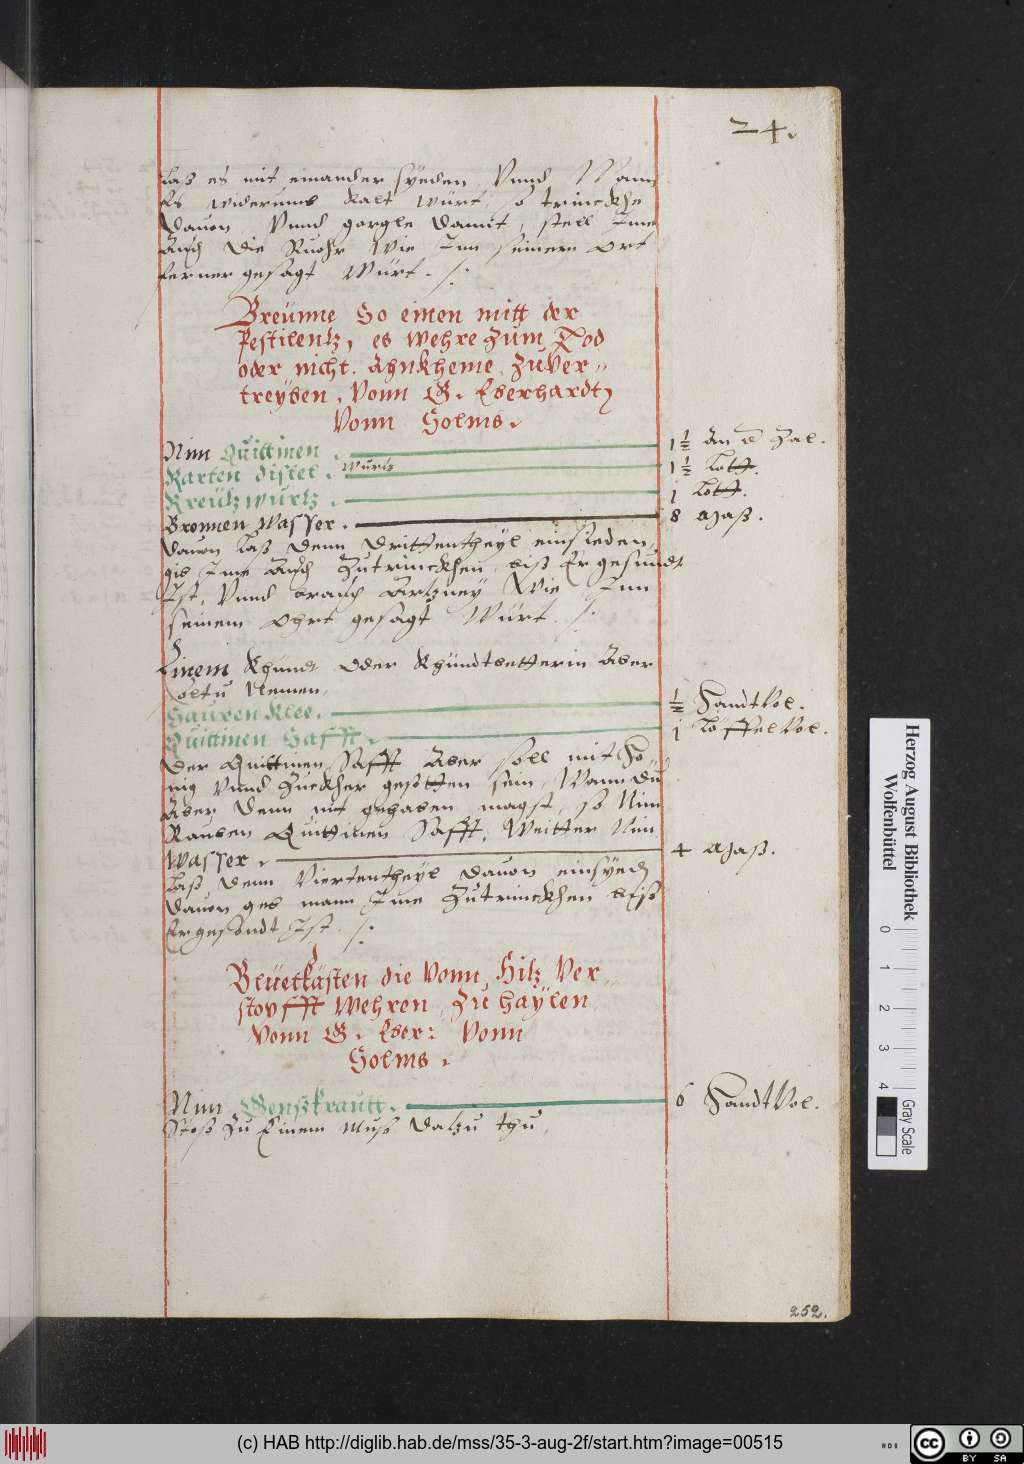 24.
Las es mit einander sÿeden Vnnd Wann
Es widerumb kalt würt, so trinckhe
dauon, Vnnd gorgle damit, stell Ime
Auch die Ruohr Wie Inn seinem Ort
ferner gesagt Würt. /.
Breünne So einen mitt der
Pestilentz, es wehre Zum Tod
oder nicht. Ahnkheme. Zuuer„
treÿben. Vonn G. Eberhardt
Vonn Solms.
Nim Quittinen . 1½ An d Zal.
Karten distel . wurtz 1½ Loth.
Kreütz wurtz . j Loth.
Bronnen Wasser. 8 Maß.
dauon Laß denn drittentheÿl einsieden,
gib Ime Auch Zutrinckhen, biß Er gesundt
Ist, Vnnd brauch Artzneÿ Wie Inn
seinem Ohrt gesagt Würt. /.
Einem Khündt Oder Khündtbetterin Aber
soltu Nemen,
Sauren Klee. ½ Handt Vol.
Quittinen Safft. j Löffel Vol.
Der Quittinen Safft Aber soll mit Hö„
nig Vnnd Zuckher gesotten sein, Wann du
Aber denn nit gehaben magst, so Nim
Rauben Quittinen Safft, Weitter Nim
Wasser. 4 Maß.
Laß denn Viertentheÿl dauon einsÿedẽ
dauon geb mann Ime Zutrinckhen biß
Er gesondt Ist. /.
Blüetkästen die Vonn Hitz Ver„
stopfft Wehren, Zu haÿlen
Vonn G. Eber: Vonn
Solms.
Nim Genßkrautt. 6 Handt Vol.
Stoß Zu Einem Muß datzu thu,
252.
Herzog August Bibliothek
Wolfenbüttel
0 1 2 3 4
Gray Scale
(c) HAB http://diglib.hab.de/mss/35-3-aug-2f/start.htm?image=00515
cc BY SA